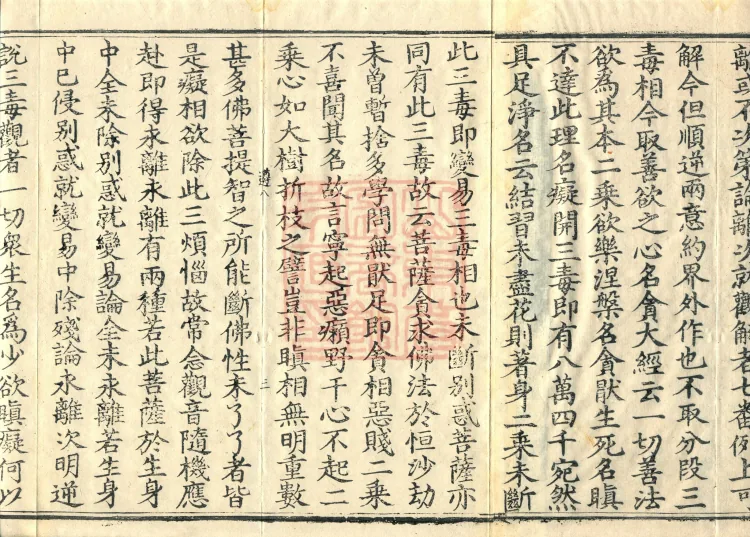 離可不次第論離次就觀解者七番例上可
解今但順逆兩意約界外作也不取分段三
毒相今取善欲之心名貪大經云一切善法
欲為其本二乘欲樂涅槃名貪猒生死名瞋
不達此理名癡開三毒即有八萬四千宛然
具足淨名云結習未盡花則著身二乘未斷
此三毒即變易三毒相也未斷別惑菩薩亦
同有此三毒故云菩薩貪求佛法於恒沙劫
未曾暫捨多學問無猒足即貪相惡賤二乗
不喜聞其名故言寧起惡癩野干心不起二
乗心如大樹折枝之譬豈非瞋相無明重數
遵八 三
甚多佛菩提智之所能斷佛性未了了者皆
是癡相欲除此三煩惱故常念觀音隨機應
赴即得永離永離有兩種若此菩薩於生身
中全未除別惑就變易論全未永離若生身
中已侵別惑就變易中除殘論永離次明逆
說三毒觀者一切衆生名為少欲瞋癡何以